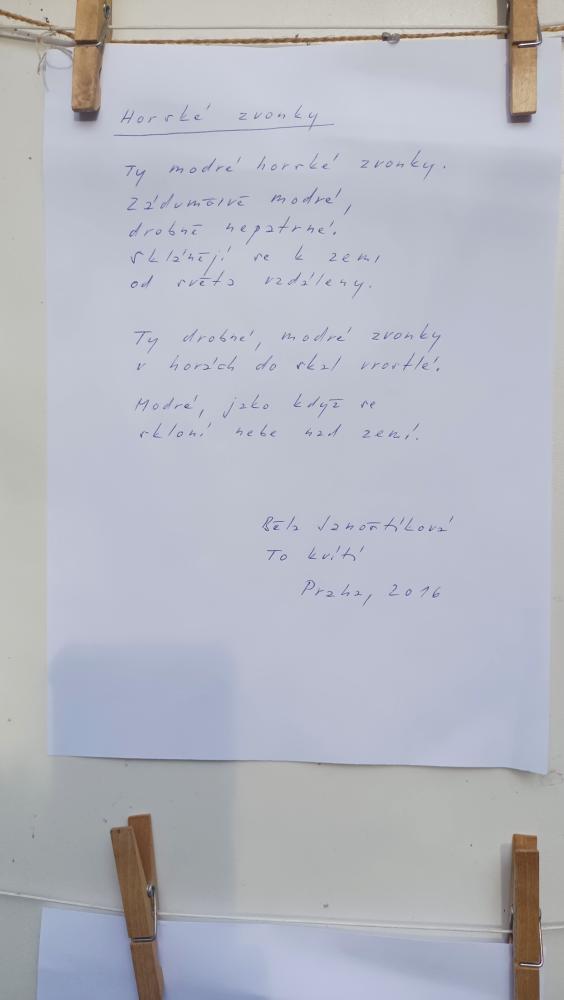 Horské zvonky
Ty modré horské zvonky.
Zádumčivě modré,
drobně nepatrné.
Sklánějí se k zemi
od světa vzdáleny.
Ty drobné, modré zvonky
v horách do skal vrostlé.
Modré, jako když se
skloní nebe nad zemí.
Běla Janoštíková
To kvítí
Praha, 2016